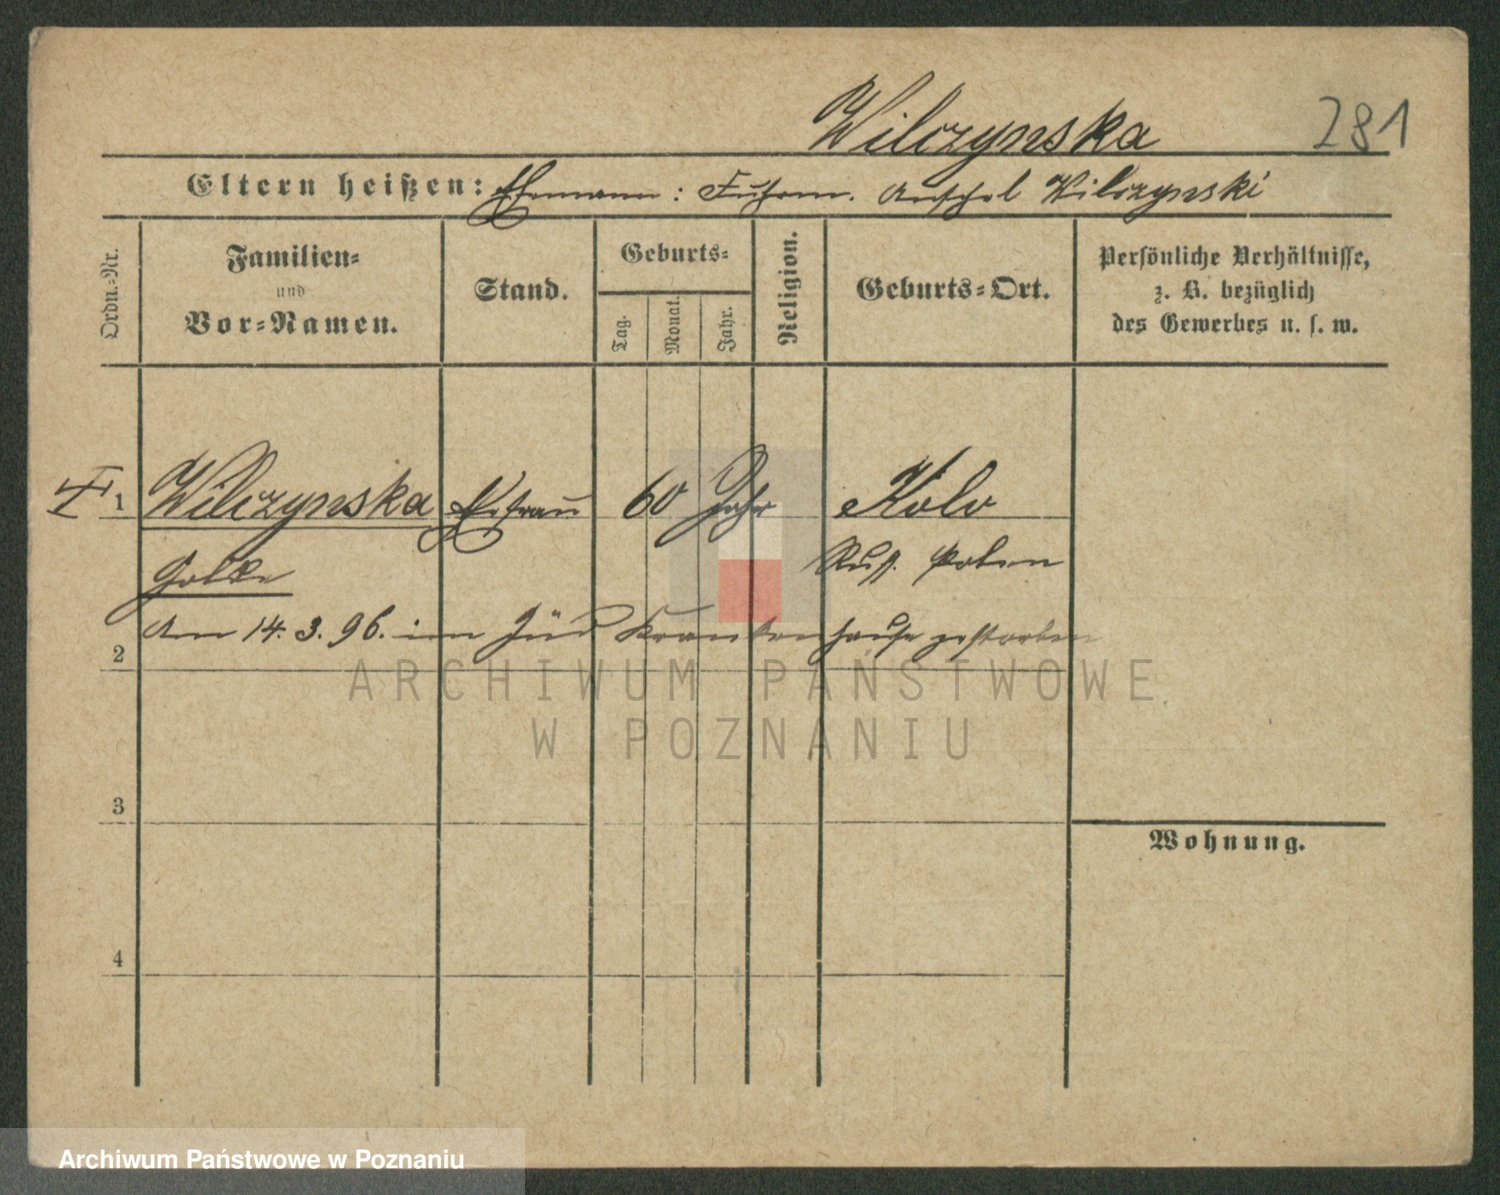 Wilczynska 281
Eltern heißen: Ehemann: Fuhrm. Anschel Wilczynski
Ordn.-Nr.
Familien-
und
Vor-Namen.
Stand.
Geburts-
Tag.
Monat.
Jahr.
Religion.
Geburts-Ort.
Persönliche Verhältnisse,
z. B. bezüglich
des Gewerbes u. s. w.
1 Wilczynska Ehefrau 60 Jahr Kolo
Russ. Polen
Am 14. 3. 96. im Jüd Krankenhause gestorben
2
ARCHIWUM PAŃSTWOWE
W POZNANIU
3
Wohnung.
4
Archiwum Państwowe w Poznaniu